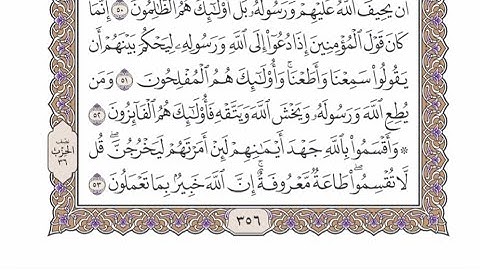 أَن يَحِيفَ ٱللَّهُ عَلَيْهِمْ وَرَسُولُهُۥ ۚ بَلْ أُو۟لَـٰٓئِكَ هُمُ ٱلظَّـٰلِمُونَ ٥٠ إِنَّمَا
كَانَ قَوْلَ ٱلْمُؤْمِنِينَ إِذَا دُعُوٓا۟ إِلَى ٱللَّهِ وَرَسُولِهِۦ لِيَحْكُمَ بَيْنَهُمْ أَن
يَقُولُوا۟ سَمِعْنَا وَأَطَعْنَا ۚ وَأُو۟لَـٰٓئِكَ هُمُ ٱلْمُفْلِحُونَ ٥١ وَمَن
يُطِعِ ٱللَّهَ وَرَسُولَهُۥ وَيَخْشَ ٱللَّهَ وَيَتَّقْهِ فَأُو۟لَـٰٓئِكَ هُمُ ٱلْفَآئِزُونَ ٥٢
۞ وَأَقْسَمُوا۟ بِٱللَّهِ جَهْدَ أَيْمَـٰنِهِمْ لَئِنْ أَمَرْتَهُمْ لَيَخْرُجُنَّ ۖ قُل
لَّا تُقْسِمُوا۟ ۖ طَاعَةٌ مَّعْرُوفَةٌ ۚ إِنَّ ٱللَّهَ خَبِيرٌۢ بِمَا تَعْمَلُونَ ٥٣
نصف
الحزب
٣٦
٣٥٦